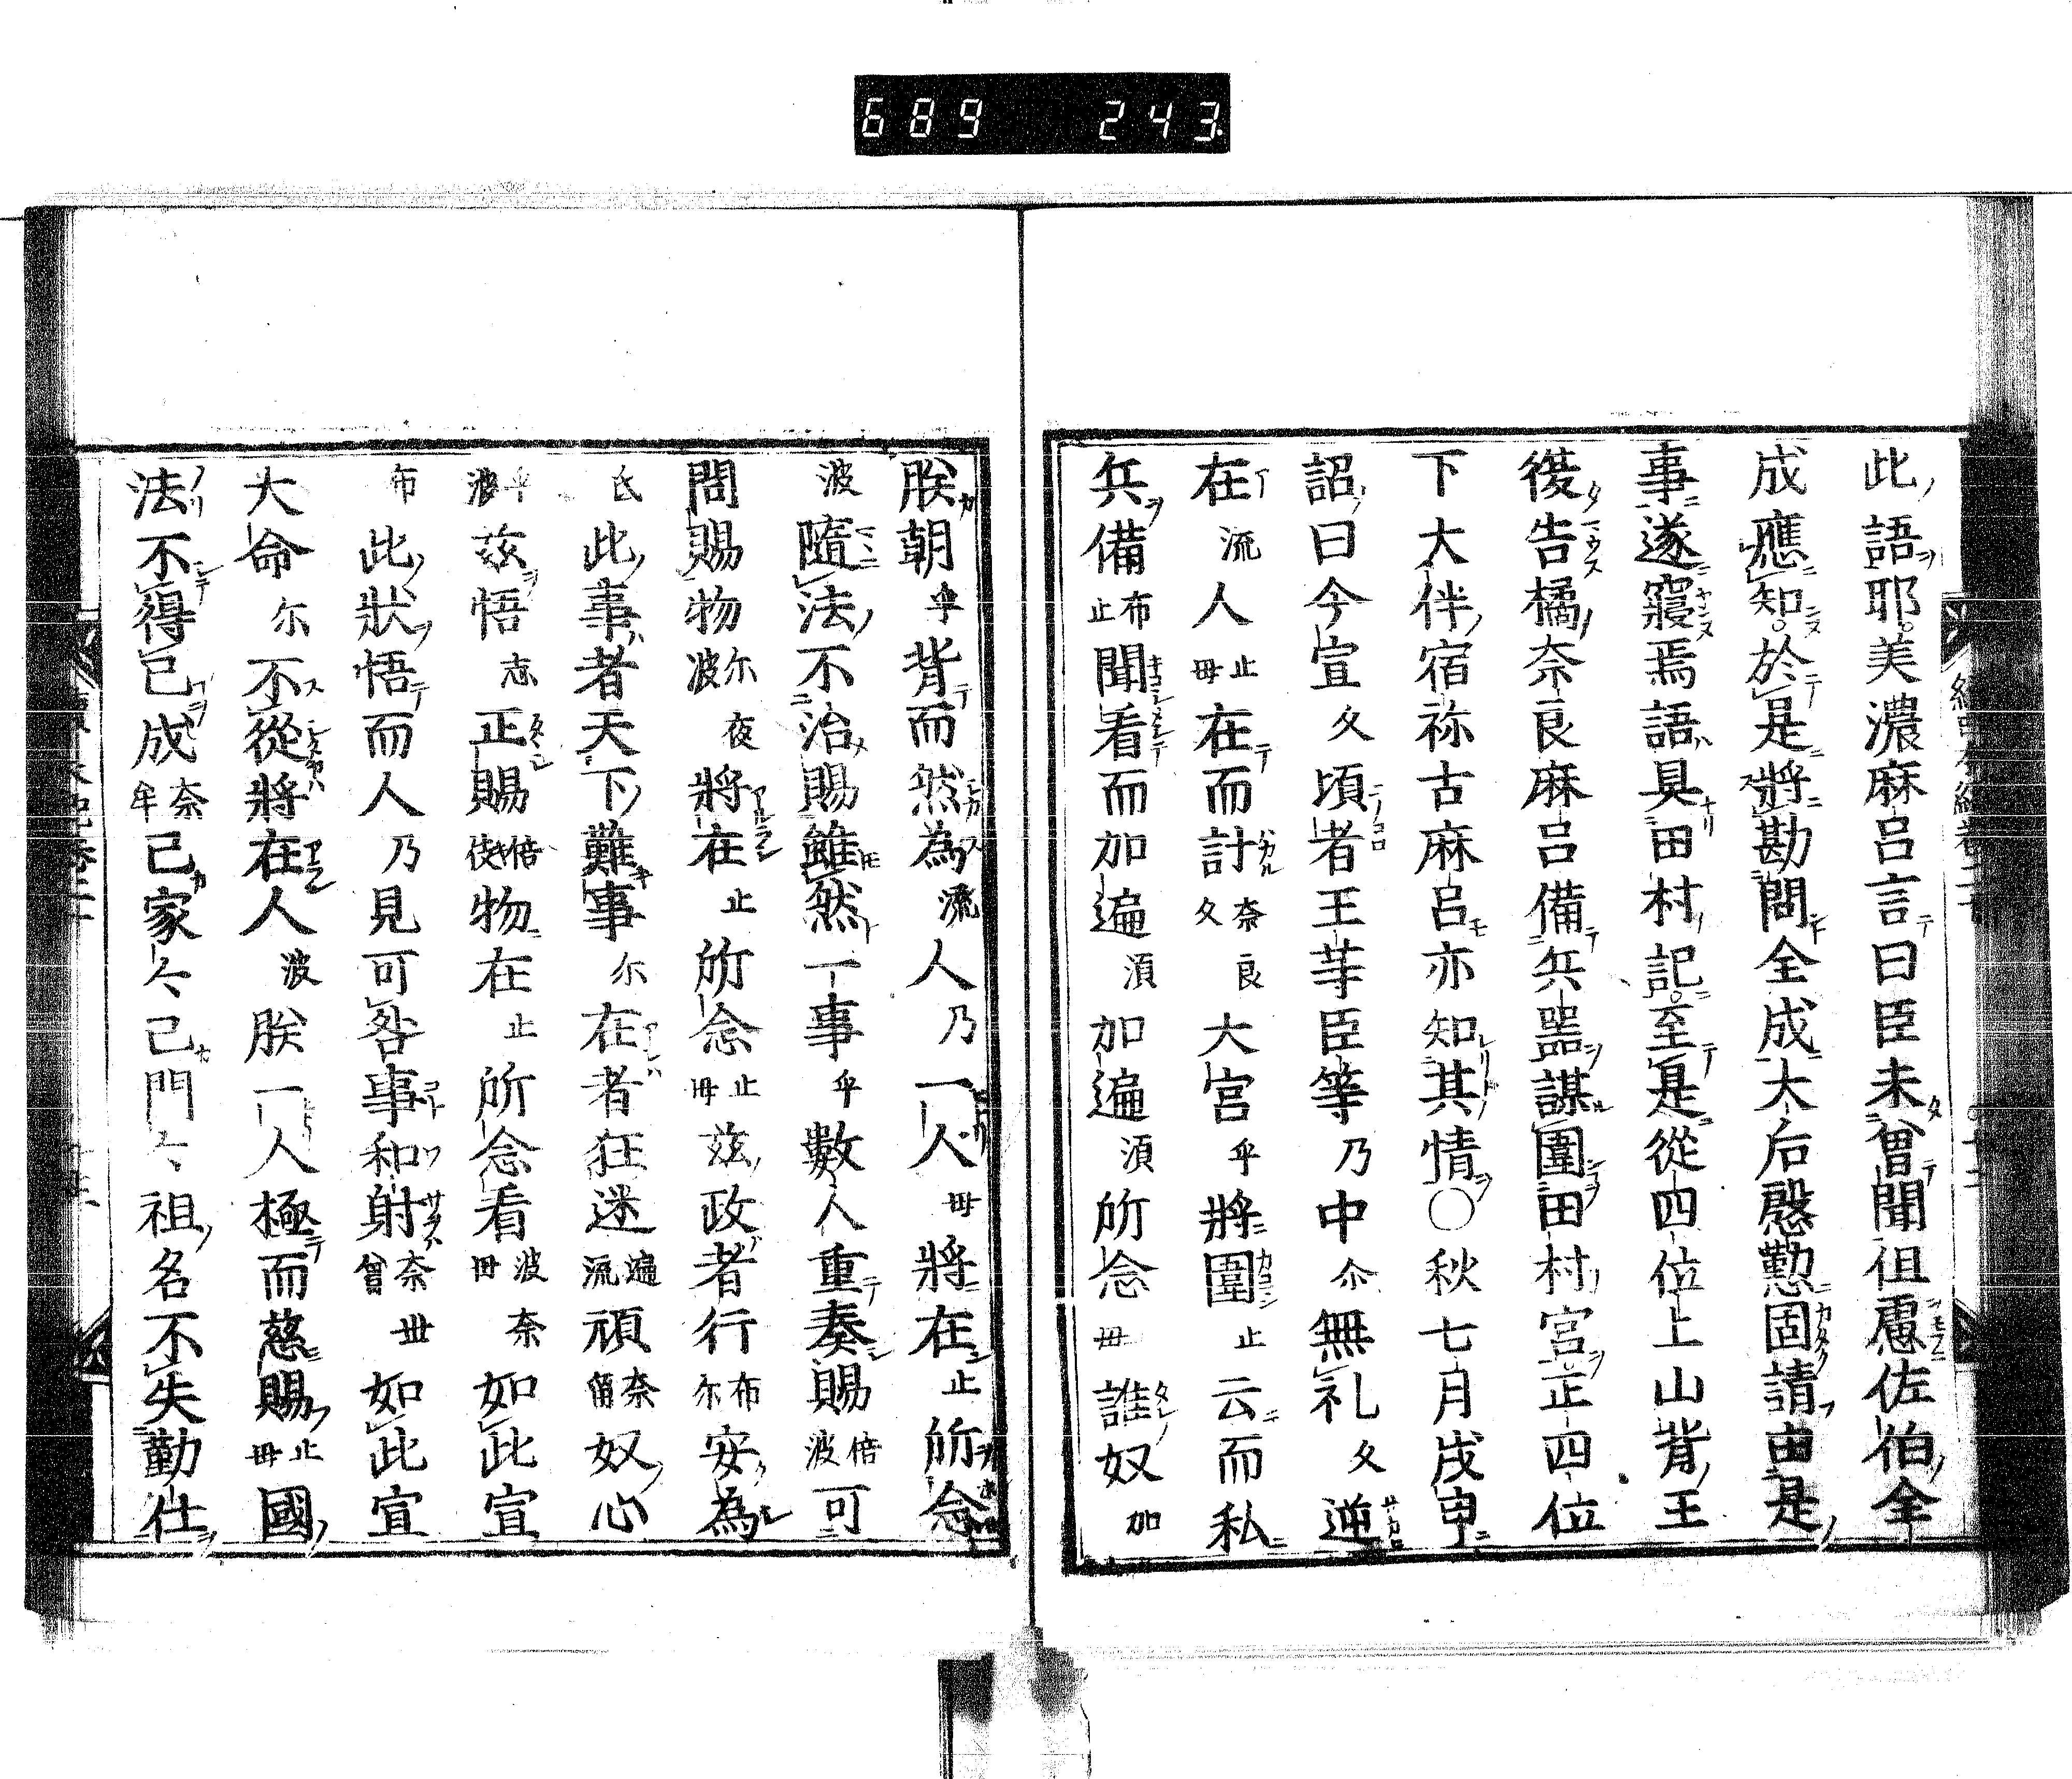 689 243
此語耶。美濃麻呂言曰臣未曾聞但慮佐伯全
成應知。於是將勘問全成大后慇懃固請由是
事遂寢焉語具田村記。至是從四位上山背王
復告橘奈良麻呂備兵器謀圍田村宮正四位
下大伴宿祢古麻呂亦知其情〇秋七月戊申
詔曰今宣久頃者王等臣等乃中尒無礼久逆
在流人止毋在而計奈良久大宮乎將圍止云而私
兵備布止聞看而加遍湏加遍湏所念毋誰奴加
朕朝乎背而然為流人乃一人毋將在止所念
波隨法不治賜雖然一事乎數人重奏賜倍波可
問賜物尓波夜將在止所念止毋茲政者行布尓安為
氐此事者天下難事尓在者狂迷遍流頑奈留奴心
乎波茲悟志正賜倍伎物在止所念看波毋奈如此宣
布此狀悟而人乃見可咎事和射奈曾毋如此宣
大命尓不從將在人波朕一人極而慈賜止毋國
法不得已成奈牟己家々己門々祖名不失勤仕